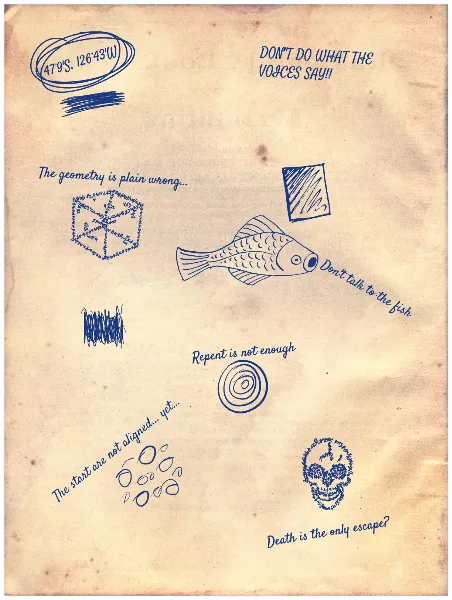 47°9'S. 126°43'W
DON'T DO WHAT THE
VOICES SAY!!
The geometry is plain wrong...
Don't talk to the fish
Repent is not enough
The stars are not aligned... yet...
Death is the only escape?